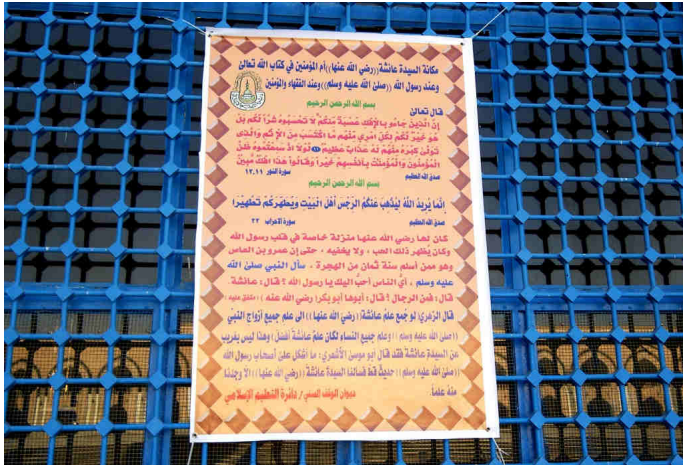 مكانة السيدة عائشة ((رضي الله عنها)) أم المؤمنين في كتاب الله تعالى
وعند رسول الله ((صلى الله عليه وسلم)) وعند الفقهاء والمؤمنين
بسم الله الرحمن الرحيم
قال تعالى
إِنَّ الَّذِينَ جَاءُو بِالْإِفْكِ عُصْبَةٌ مِنْكُمْ لَا تَحْسَبُوهُ شَرًّا لَكُمْ بَلْ
هُوَ خَيْرٌ لَكُمْ لِكُلِّ امْرِئٍ مِنْهُمْ مَا اكْتَسَبَ مِنَ الْإِثْمِ وَالَّذِي
تَوَلَّىٰ كِبْرَهُ مِنْهُمْ لَهُ عَذَابٌ عَظِيمٌ (١١) لَوْلَا إِذْ سَمِعْتُمُوهُ ظَنَّ
الْمُؤْمِنُونَ وَالْمُؤْمِنَاتُ بِأَنْفُسِهِمْ خَيْرًا وَقَالُوا هَٰذَا إِفْكٌ مُبِينٌ
صدق الله العظيم سورة النور ١١،١٢
بسم الله الرحمن الرحيم
إِنَّمَا يُرِيدُ اللَّهُ لِيُذْهِبَ عَنْكُمُ الرِّجْسَ أَهْلَ الْبَيْتِ وَيُطَهِّرَكُمْ تَطْهِيرًا
صدق الله العظيم سورة الاحزاب ٣٣
كان لها رضي الله عنها منزلة خاصة في قلب رسول الله
وكان يُظهر ذلك الحب ، ولا يخفيه ، حتى إن عمرو بن العاص
وهو ممن أسلم سنة ثمان من الهجرة ، سأل النبي صلى الله
عليه وسلم ، أي الناس أحب اليك يا رسول الله ؟ قال : عائشة .
قال : فمن الرجال ؟ قال : أبوها أبو بكر( رضي الله عنه ) متفق عليه .
قال الزهري: لو جمع علم عائشة (( رضي الله عنها )) الى علم جميع أزواج النبي
((صلى الله عليه وسلم )) وعلم جميع النساء لكان علم عائشة أفضل) وهذا ليس بغريب
عن السيدة عائشة فقد قال أبو موسى الأشعري : ما أشكل على أصحاب رسول الله
((صلى الله عليه وسلم )) حديث قط فسألنا السيدة عائشة (( رضي الله عنها )) الا وجدنا
منه علما . ديوان الوقف السني / دائرة التعليم الإسلامي